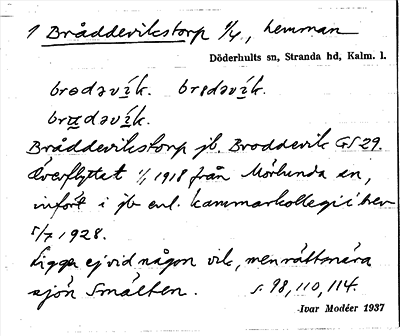 1 Bråddevikstorp 1/4., hemman
Döderhults sn, Stranda hd, Kalm. l.
Bråddevikstorp jb. Broddevik GS 29.
Överflyttat 1/1 1918 från Mörlunda sn,
infört i jb enl. kammarkollegiets brev
5/7 1928.
Ligger ej vid någon vik, men rätt nära
sjön Smålten. s. 98, 110, 114.
Ivar Modéer 1937